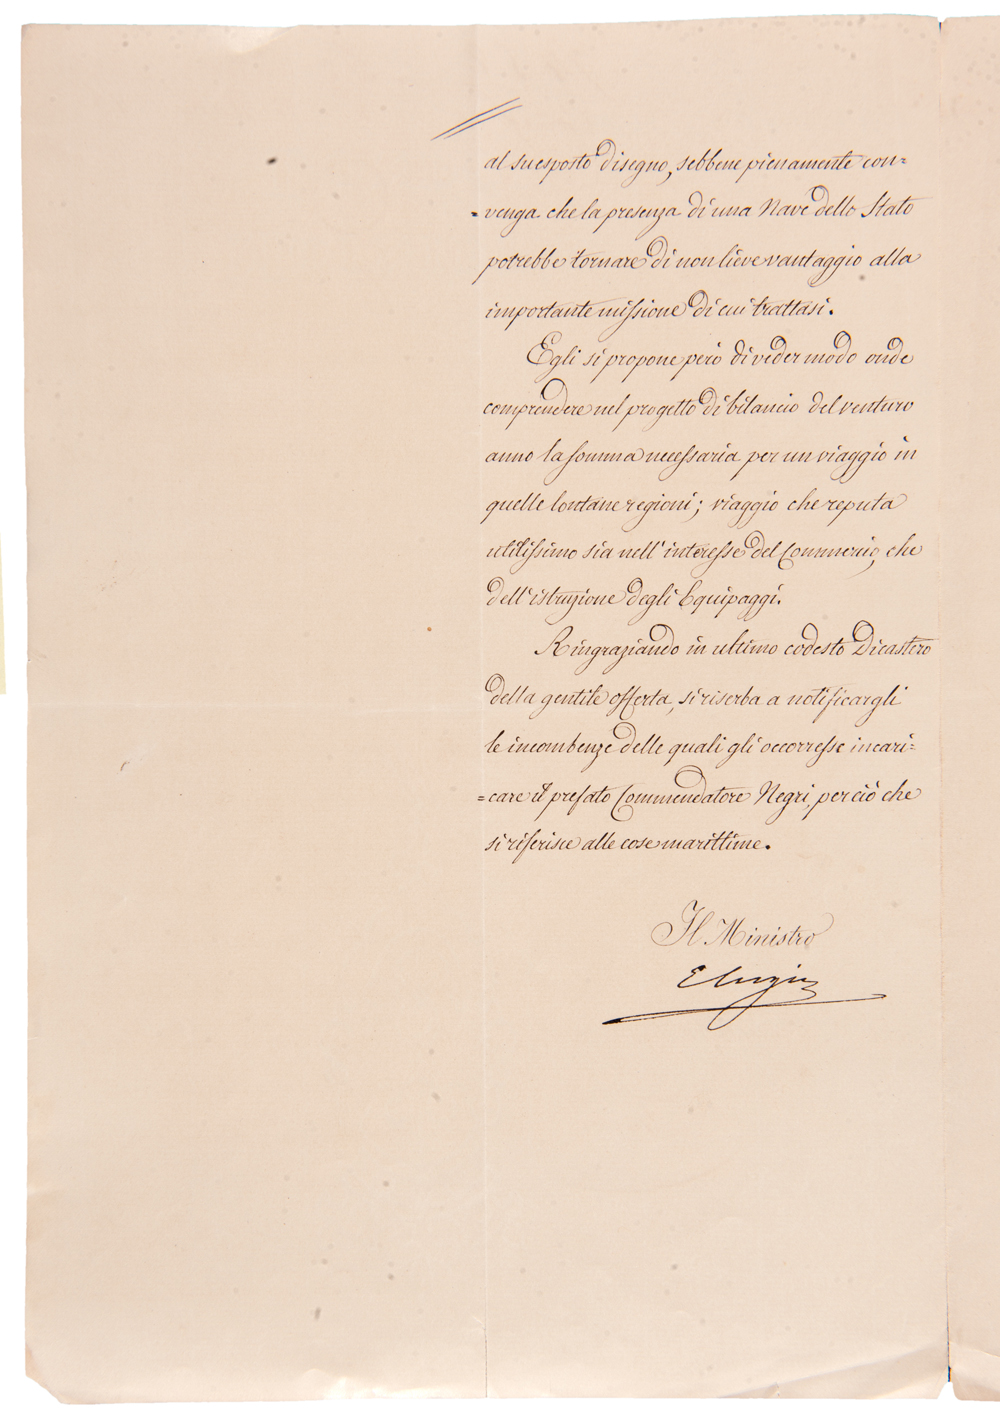 al suesposto disegno, sebbene pienamente con=
=venga che la presenza di una Nave dello Stato
potrebbe tornare di non lieve vantaggio alla
importante missione di cui trattasi.
Egli si propone però di veder modo onde
comprendere nel progetto di bilancio del venturo
anno la somma necessaria per un viaggio in
quelle lontane regioni; viaggio che reputa
utilissimo sia nell'interesse del Commercio, che
dell'istruzione degli Equipaggi.
Ringraziando in ultimo codesto Dicastero
della gentile offerta, si riserba a notificargli
le incombenze delle quali gli occorresse incari=
=care il prefato Commendatore Negri, per ciò che
si riferisce alle cose marittime.
Il Ministro